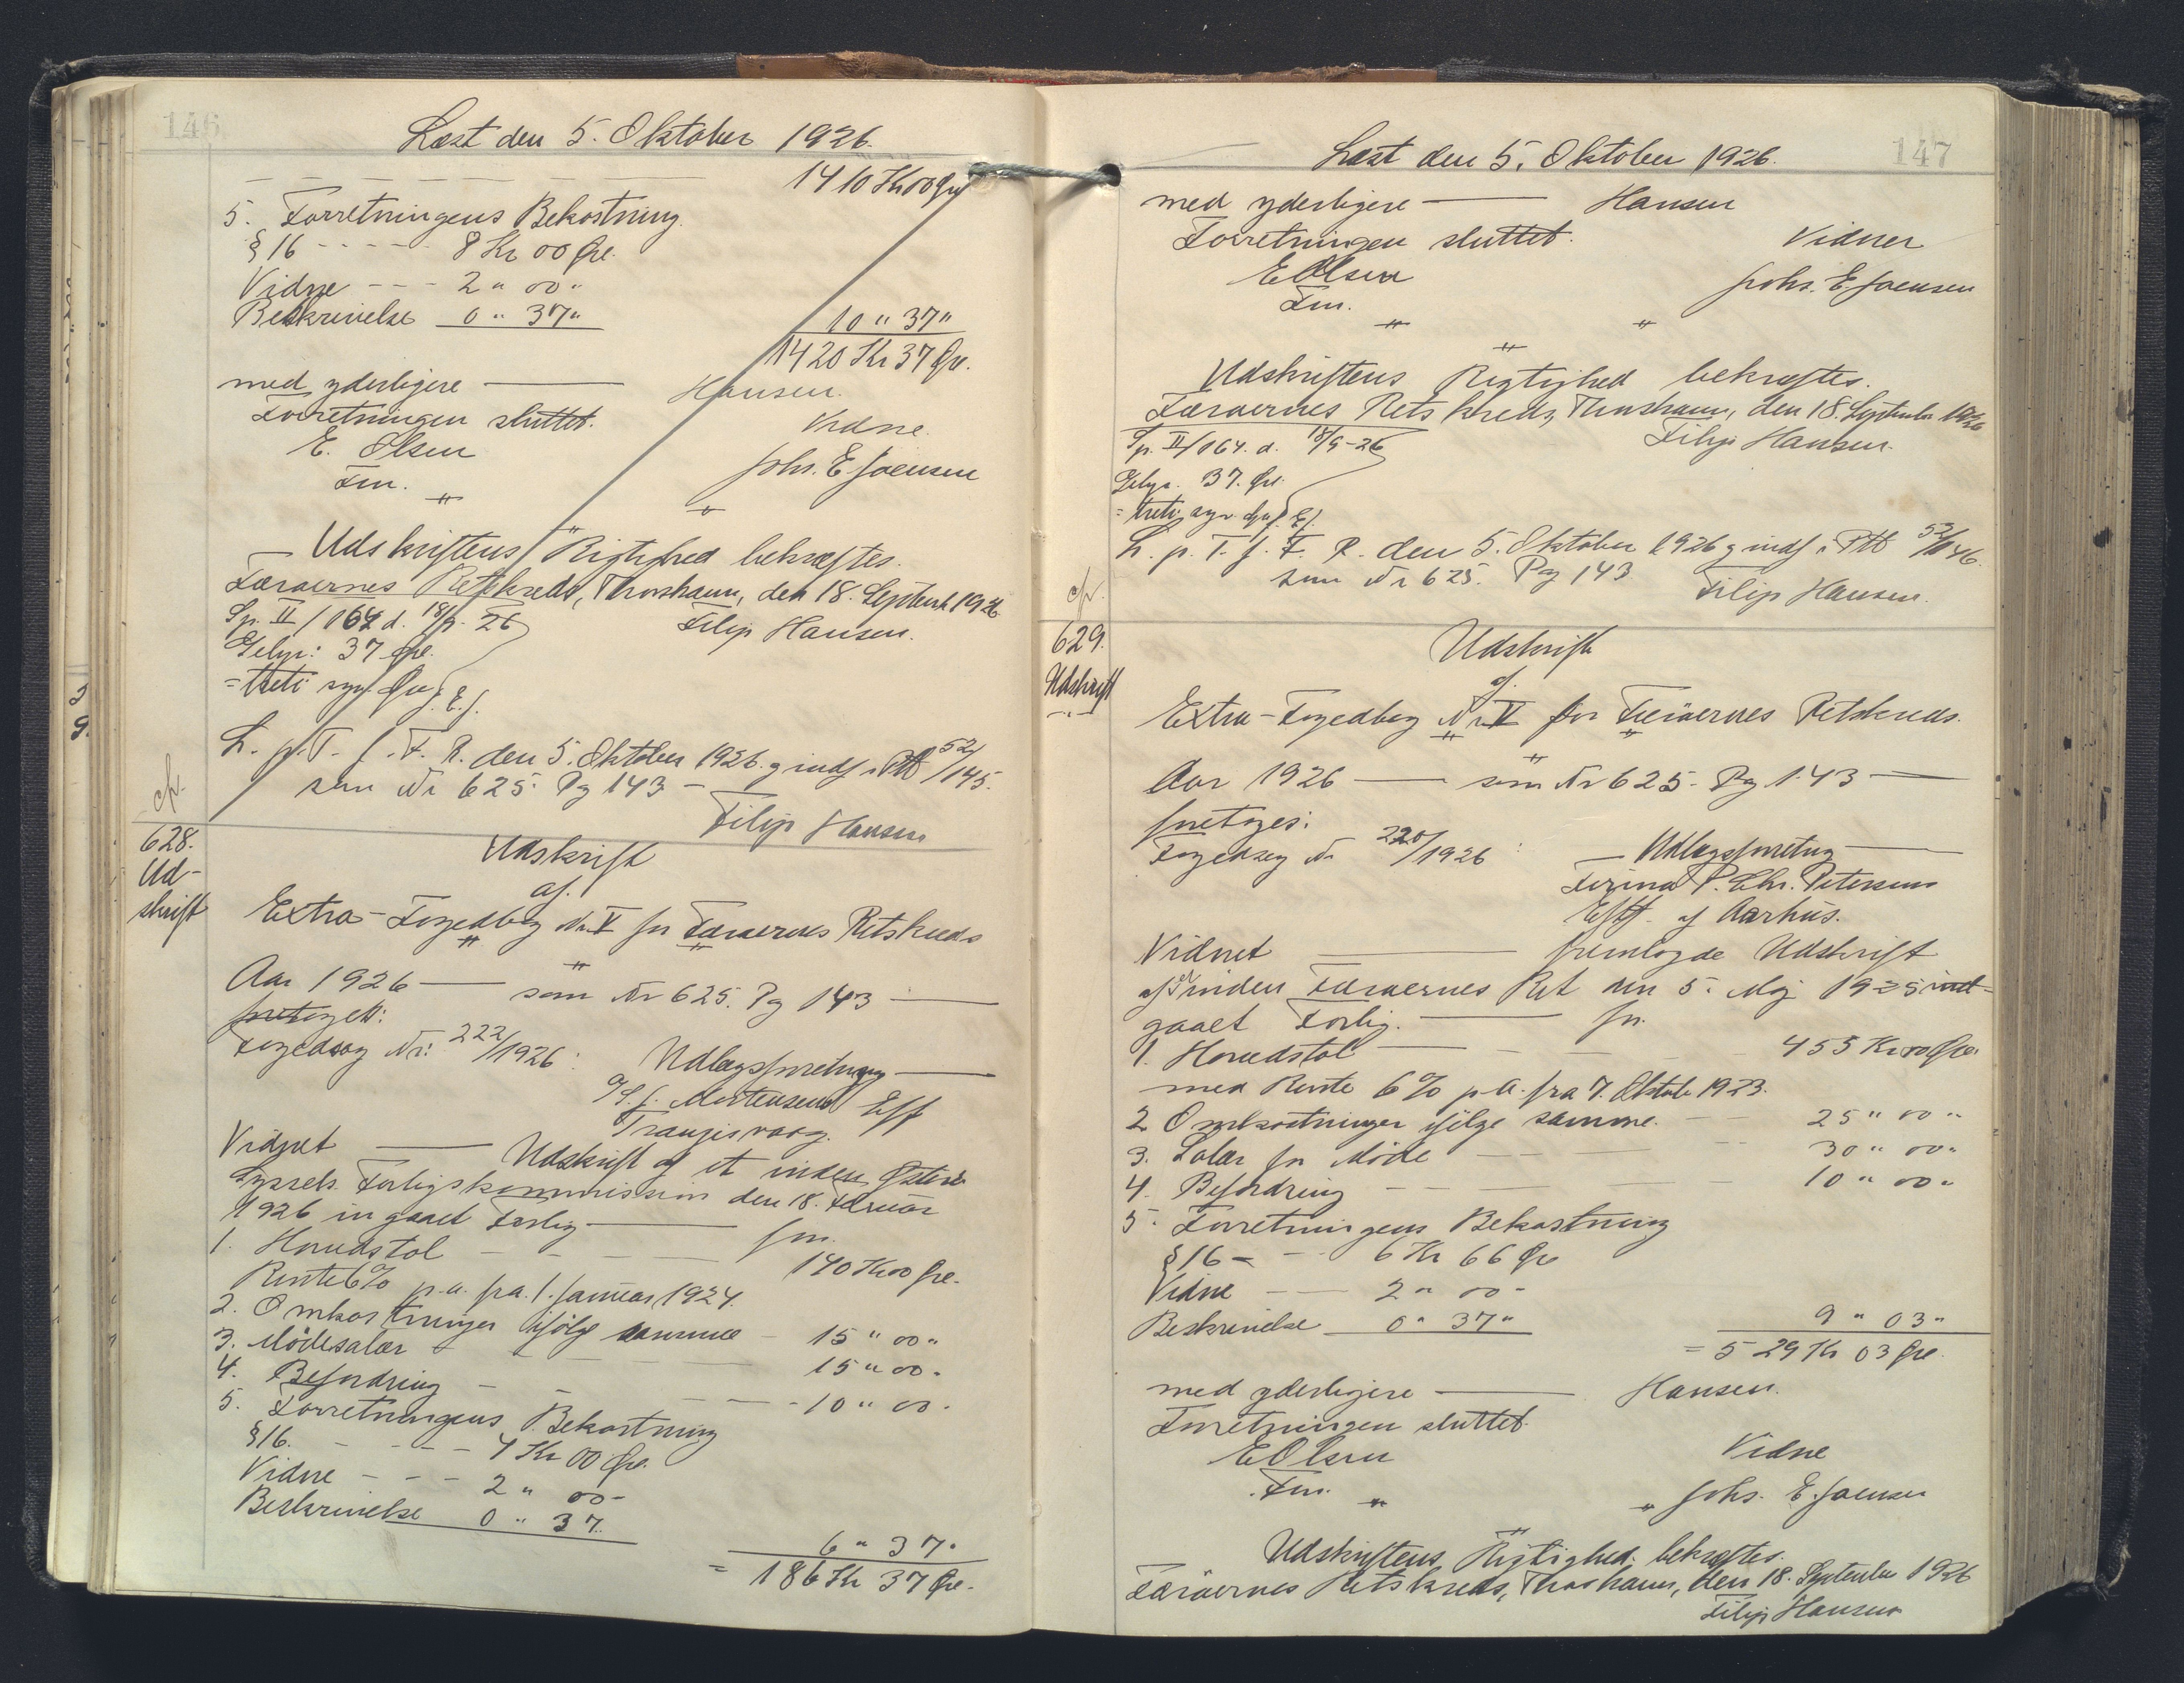 146
Læst den 5. Oktober 1926.
1410 Kr 00 Øre
5. Forretningens Bekostning
§ 16 - - - - - 8 Kr 00 Øre.
Vidne - - - 2 " 00 "
Beskrivelse 0 " 37 "
10 " 37 "
1420 Kr 37 Øre.
med yderligere — Hansen.
Forretningen sluttet.
Vidne.
E. Olsen
Johs. E Joensen
Fm.
Udskriftens Rigtighed bekræftes.
Færøernes Retskreds, Thorshavn, den 18. Septemb 1926
Sp. II / 164 d. 18/9-26
Filip Hansen.
Gebyr: 37 Øre.
= treti syv Øre J. E. J.
L. p. T. f. F. R. den 5. Oktober 1926 g indf i Ptb 52/145.
som Nr 625. Pg 143 -
Filip Hansen
628.
Ud-
skrift
Udskrift
af
Extra-Fogedbog Nr. V for Færøernes Retskreds
Aar 1926 — som Nr 625. Pg 143 —
foretoges:
Fogedsag Nr: 222/1926: Udlægsforretning —
J. Mortensens Eff
Trangisvaag.
Vidnet — Udskrift af et inden Østerø
Syssels Forligskommission den 18. Februar
1926 indgaaet Forlig — for.
1. Hovedstol - - - - 140 Kr 00 Øre.
Rente 6% p.a. fra 1. Januar 1924.
2. Omkostninger ifølge samme - 15 " 00 "
3. Mødesalær - - - - 15 " 00 "
4. Befordring - - - - 10 " 00 "
5. Forretningens Bekostning
§ 16. - - - - 4 Kr 00 Øre.
Vidne - - - 2 " 00 -
Beskrivelse 0 " 37.
6 " 37 "
= 186 Kr 37 Øre.
147
Læst den 5. Oktober 1926.
med yderligere — Hansen
Forretningen sluttet.
Vidner
E Olsen
Johs. E Joensen
Fm.
Udskriftens Rigtighed bekræftes.
Færøernes Retskreds, Thorshavn, den 18. September 1926
Sp. II / 164. d. 18/9-26
Filip Hansen.
Gebyr. 37. Øre.
= treti syv Øre J. E J.
L. p. T. f. F. R. den 5. Oktober 1926 g indf i Ptb 52/146.
som Nr 625. Pg 143 Filip Hansen.
629.
Udskrift
Udskrift
af
Extra-Fogedbog Nr V for Færøernes Retskreds.
Aar 1926 — som Nr 625. Pg 143 —
foretoges:
Fogedsag Nr 220/1926: — Udlægsforretng —
Firma P. Chr. Petersens
Eftf. af Aarhus.
Vidnet — fremlagde Udskrift
af er inden Færøernes Ret den 5. Maj 1925 ind-
gaaet Forlig. — for.
1. Hovedstol - - - 455 Kr 00 Øre
med Rente 6% p.a. fra 7. Oktob 1923.
2 Omkostninger ifølge samme - 25 " 00 "
3. Salær for Møde - - - 30 " 00 "
4. Befordring - - - 10 " 00 "
5. Forretningens Bekostning
§ 16 - - 6 Kr 66 Øre
Vidne - - 2 " 00 -
Beskrivelse 0 " 37 "
9 " 03 "
= 529 Kr 03 Øre.
med yderligere — Hansen.
Forretningen sluttet.
E Olsen
Vidne
Fm.
Johs. E. Joensen
Udskriftens Rigtighed bekræftes.
Færøernes Retskreds, Thorshavn, den 18. September 1926
Filip Hansen